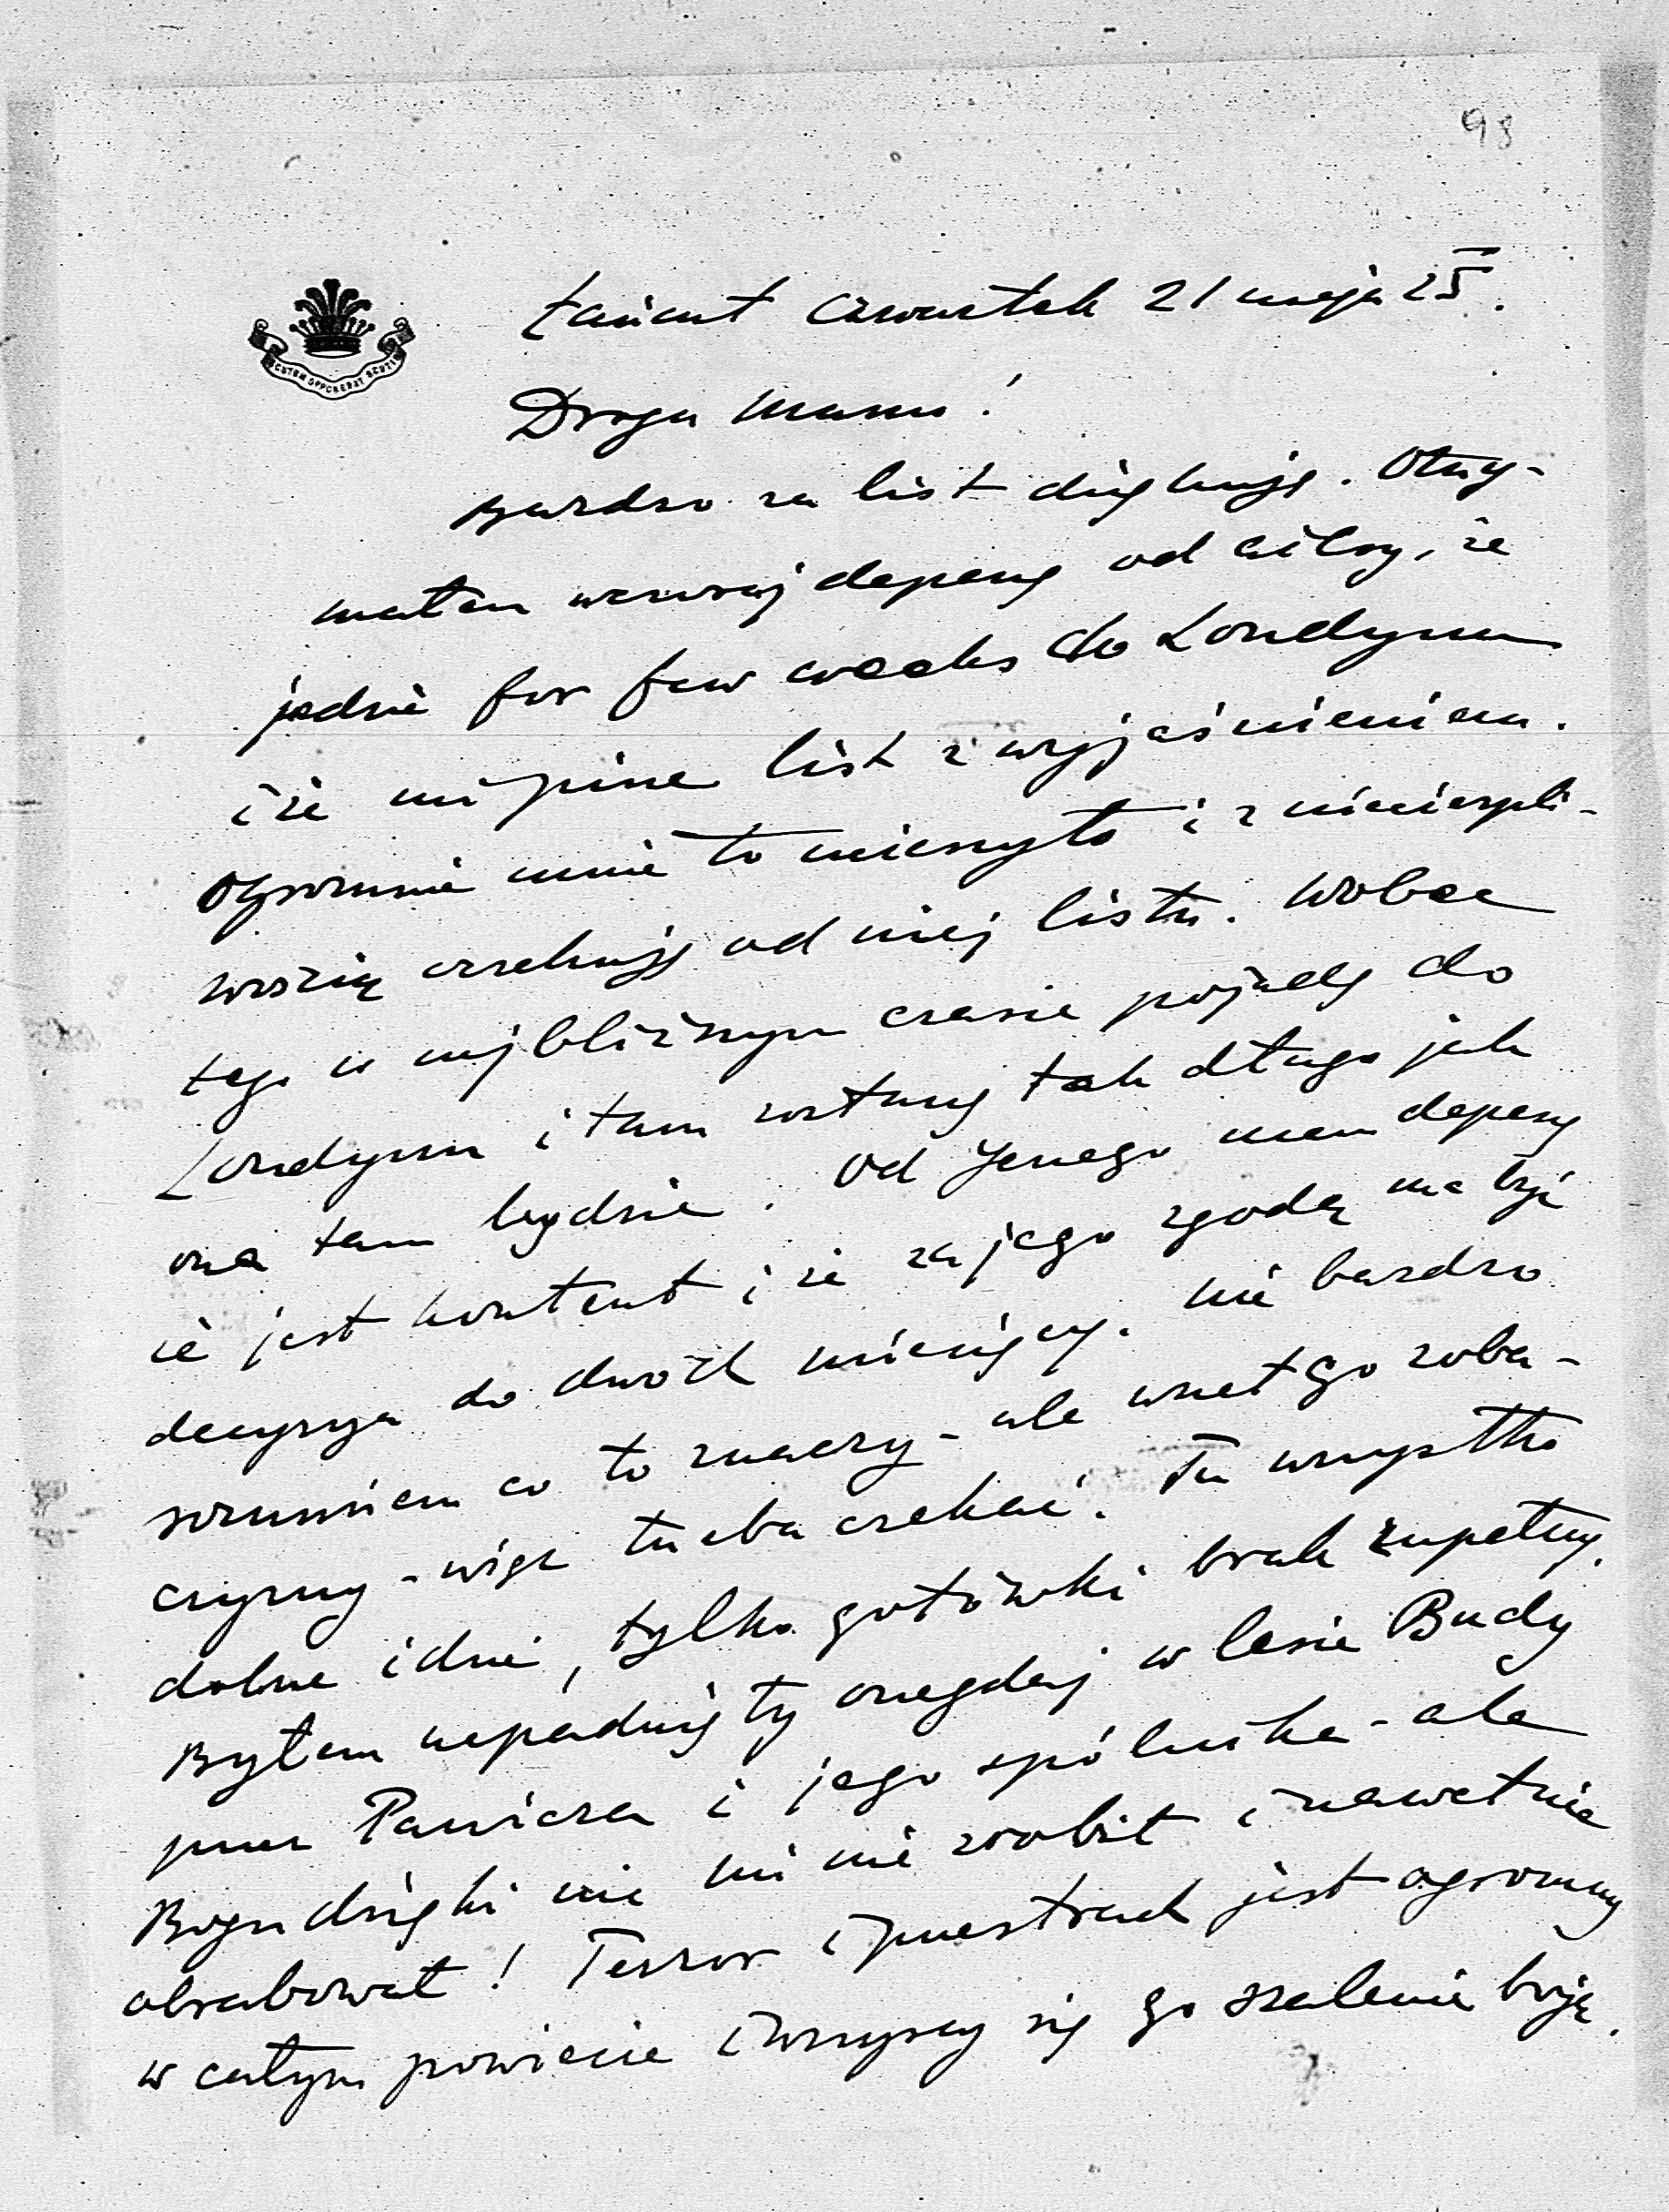 98
SCUTUM OPPONEBAT SCUTIS
Łańcut czwartek 21 maja 25.
Droga Mamo!
Bardzo za list dziękuję. Otrzy-
małem wczoraj depeszę od Cilsy, że
jedzie for few weeks do Londynu
i że mi pisze list z wyjaśnieniem.
Ogromnie mnie to ucieszyło i z niecierpli-
wością oczekuję od niej listu. Wobec
tego w najbliższym czasie pojadę do
Londynu i tam zostanę tak długo jak
ona tam będzie. Od Jenego mam depeszę
że jest kontent i że za jego zgodą ma być
decyzya do dwóch miesięcy. Nie bardzo
rozumiem co to znaczy - ale wnet go zoba-
czymy - więc trzeba czekać. Tu wszystko
dobrze idzie, tylko gotówki brak zupełny.
Byłem napadnięty onegdaj w lesie Budy
przez Panicza i jego spólnika - ale
Bogu dzięki nic mi nie zrobił i nawet nie
obrabował! Terror i przestrach jest ogromny
w całym powiecie i wszyscy się go szalenie boją.